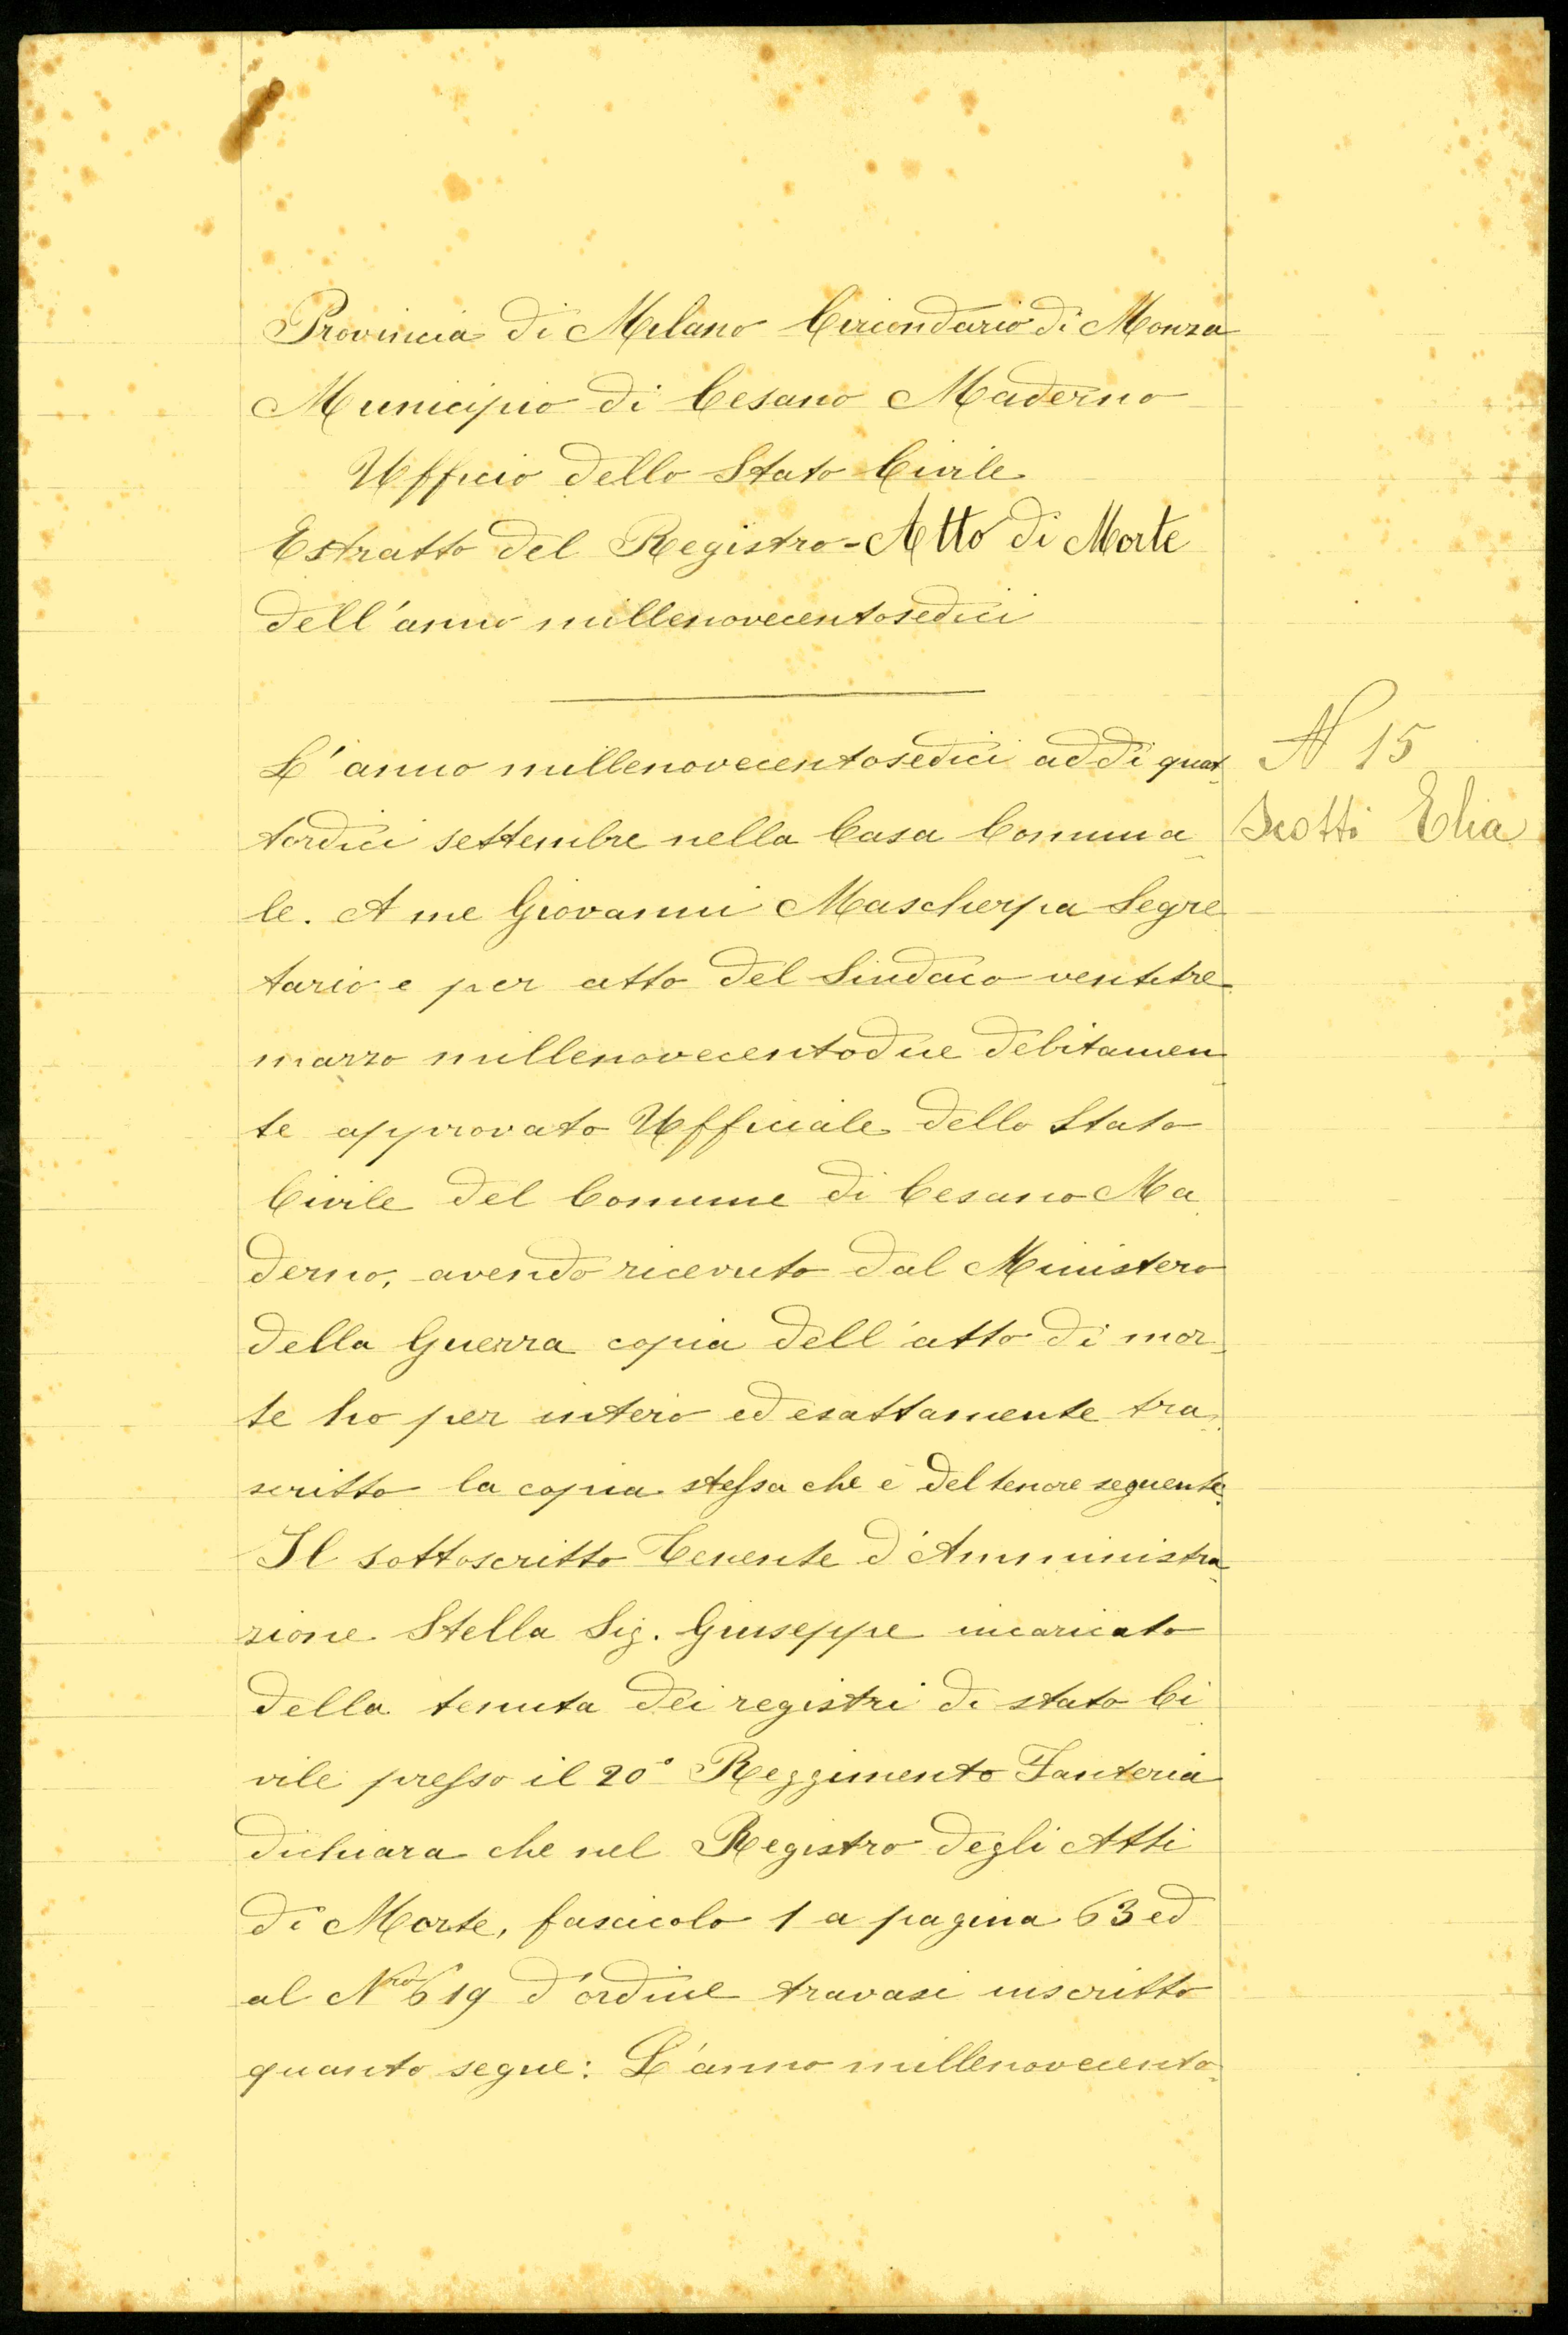 Provincia di Milano Circondario di Monza
Municipio di Cesano Maderno
Ufficio dello Stato Civile
Estratto del Registro - Atto di Morte
dell'anno millenovecentosedici
L'anno millenovecentosedici addì quat-
tordici settembre nella Casa Comuna-
le. A me Giovanni Mascherpa Segre
tario e per atto del Sindaco ventitre
marzo millenovecentodue debitamen-
te approvato Ufficiale dello Stato
Civile del Comune di Cesano Ma
derno, avendo ricevuto dal Ministero
della Guerra copia dell'atto di mor-
te ho per intero ed esattamente tra-
scritto la copia stessa che è del tenore seguente.
Il sottoscritto Tenente d'Amministra-
zione Stella Sig. Giuseppe incaricato
della tenuta dei registri di stato Ci
vile presso il 20° Reggimento Fanteria
dichiara che nel Registro degli Atti
di Morte, fascicolo 1 a pagina 63 ed
al Nro 619 d'ordine travasi inscritto
quanto segue: L'anno millenovecento-
N 15
Scotti Elia